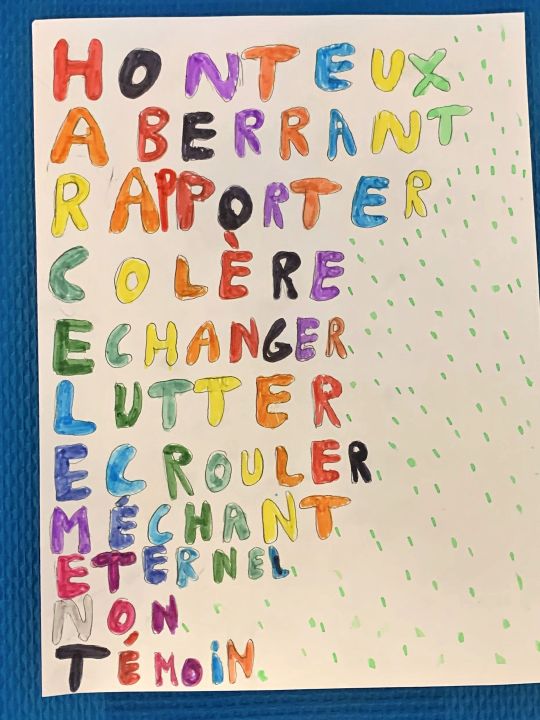 HONTEUX
ABERRANT
RAPPORTER
COLÈRE
ECHANGER
LUTTER
ECROULER
MÉCHANT
ETERNEL
NON
TÉMOIN